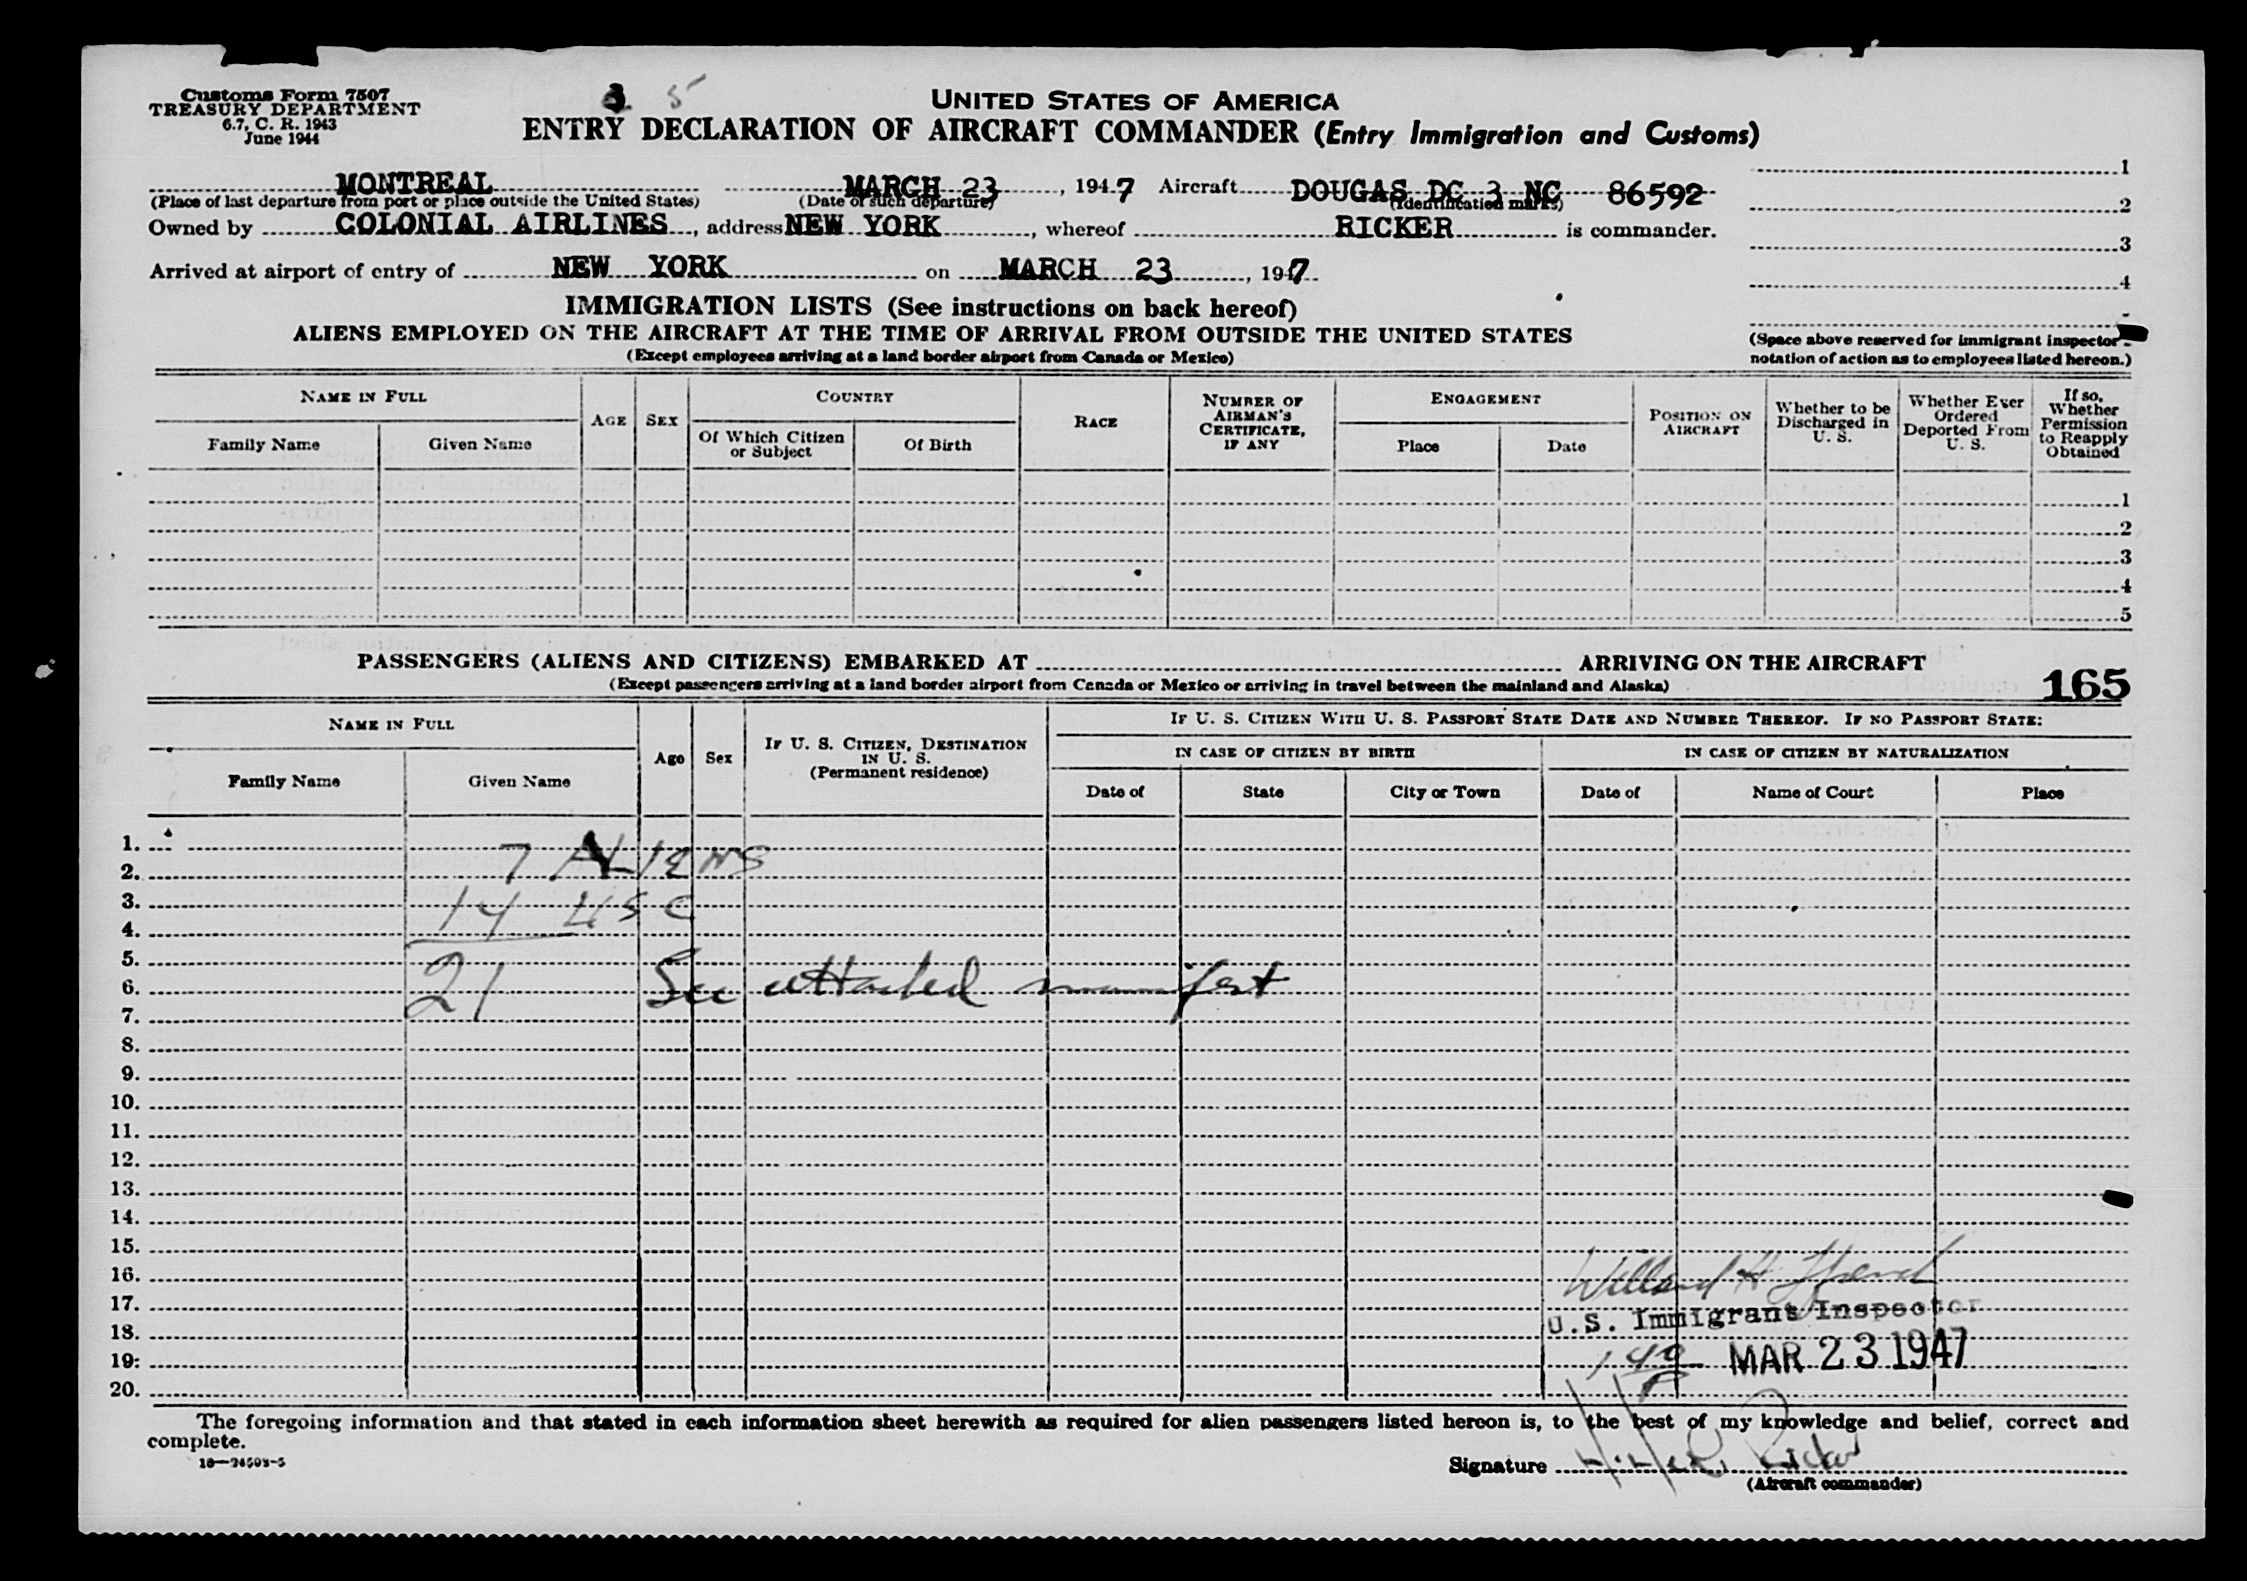 Customs Form 7507
TREASURY DEPARTMENT
6.7, C. R. 1943
June 1944
3 5
UNITED STATES OF AMERICA
ENTRY DECLARATION OF AIRCRAFT COMMANDER (Entry Immigration and Customs)
MONTREAL MARCH 23, 1947 Aircraft DOUGAS DC 3 NC 86592
(Place of last departure from port or place outside the United States) (Date of such departure) (Identification marks)
Owned by COLONIAL AIRLINES, address NEW YORK, whereof RICKER is commander.
Arrived at airport of entry of NEW YORK on MARCH 23, 1947
1
2
3
4
(Space above reserved for immigrant inspector
notation of action as to employees listed hereon.)
IMMIGRATION LISTS (See instructions on back hereof)
ALIENS EMPLOYED ON THE AIRCRAFT AT THE TIME OF ARRIVAL FROM OUTSIDE THE UNITED STATES
(Except employees arriving at a land border airport from Canada or Mexico)
NAME IN FULL
Family Name Given Name
AGE
SEX
COUNTRY
Of Which Citizen or Subject
Of Birth
RACE
NUMBER OF AIRMAN'S CERTIFICATE, IF ANY
ENGAGEMENT
Place Date
POSITION ON AIRCRAFT
Whether to be Discharged in U. S.
Whether Ever Ordered Deported From U. S.
If so, Whether Permission to Reapply Obtained
1
2
3
4
5
PASSENGERS (ALIENS AND CITIZENS) EMBARKED AT ARRIVING ON THE AIRCRAFT
(Except passengers arriving at a land border airport from Canada or Mexico or arriving in travel between the mainland and Alaska)
165
NAME IN FULL
Family Name Given Name
Age
Sex
IF U. S. CITIZEN, DESTINATION IN U. S.
(Permanent residence)
IF U. S. CITIZEN WITH U. S. PASSPORT STATE DATE AND NUMBER THEREOF. IF NO PASSPORT STATE:
IN CASE OF CITIZEN BY BIRTH
Date of State City or Town
IN CASE OF CITIZEN BY NATURALIZATION
Date of Name of Court Place
1.
7 ALIENS
2.
3.
14 USC
4.
5.
6.
21 See attached manifest
7.
8.
9.
10.
11.
12.
13.
14.
15.
16.
Willard H
17.
U.S. Immigrant Inspector
18.
19.
MAR 23 1947
20.
The foregoing information and that stated in each information sheet herewith as required for alien passengers listed hereon is, to the best of my knowledge and belief, correct and
complete.
16—24503-5
Signature Ricker
(Aircraft commander)